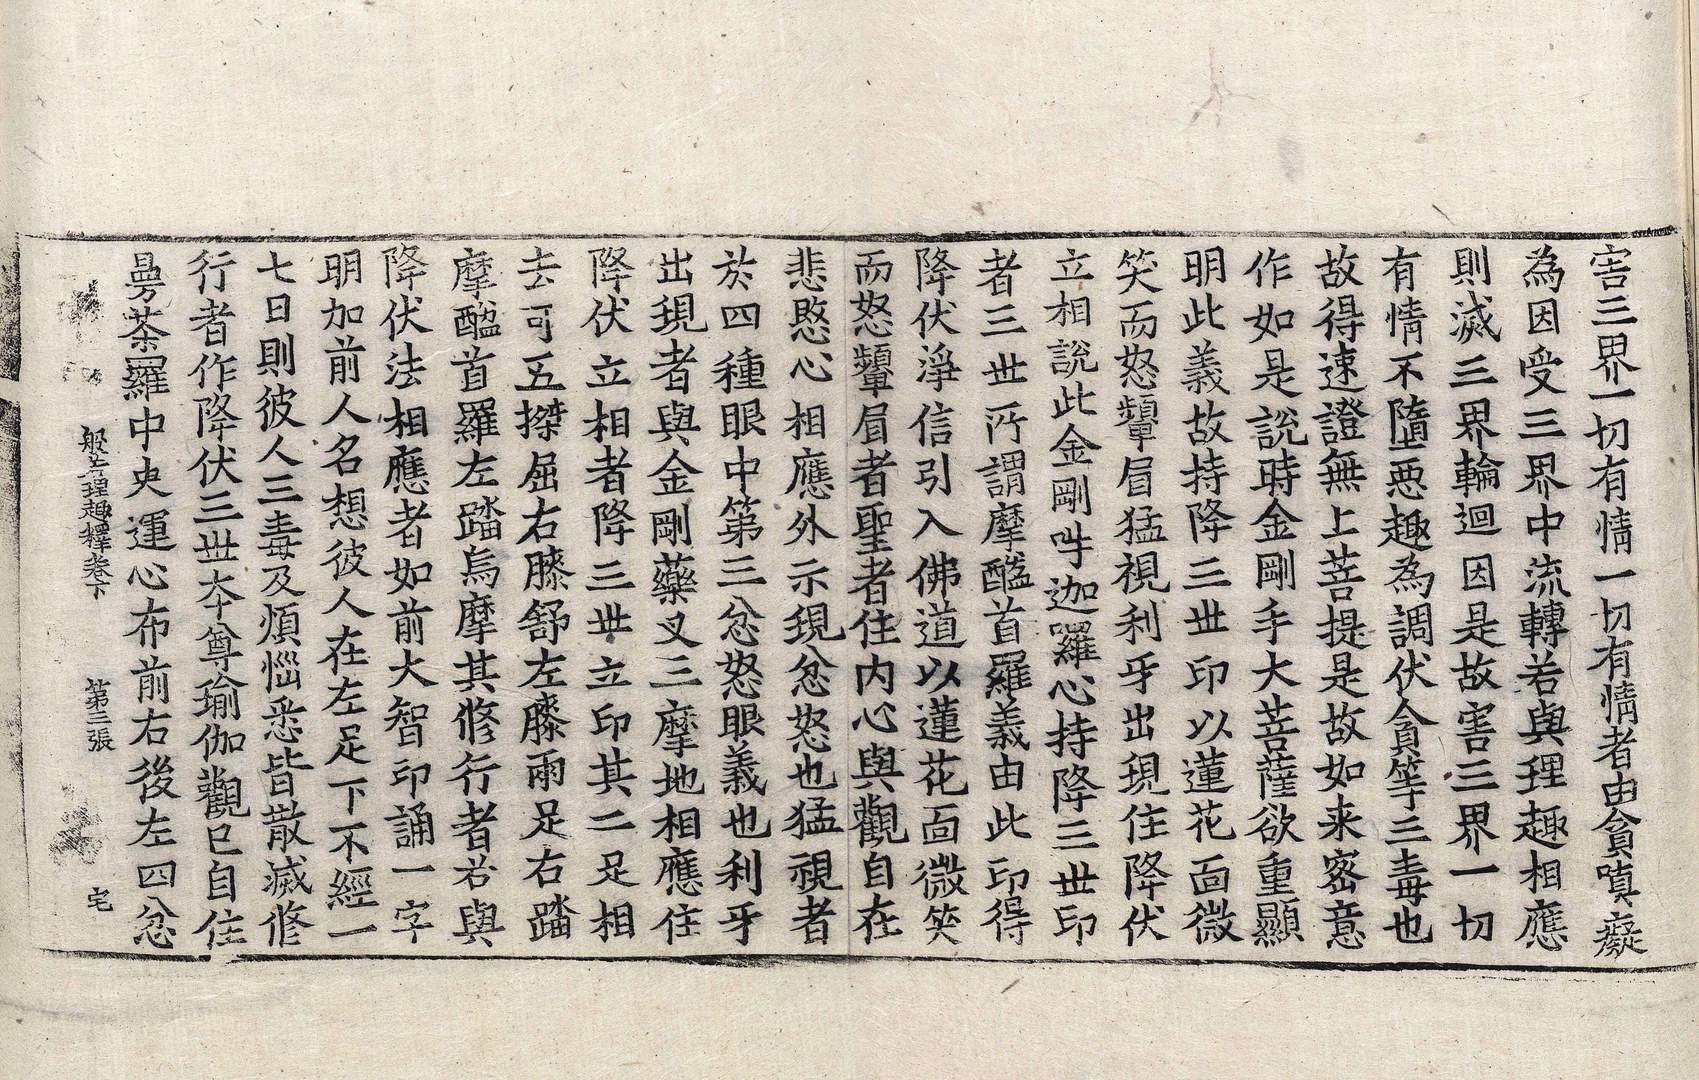 害三界一切有情一切有情者由貪嗔癡
為因受三界中流轉若與理趣相應
則滅三界輪迴因是故害三界一切
有情不墮惡趣為調伏貪等三毒也
故得速證無上菩提是故如来密意
作如是說時金剛手大菩薩欲重顯
明此義故持降三世印以蓮花面微
笑而怒顰眉猛視利牙出現住降伏
立相說此金剛吽迦羅心持降三世印
者三世所謂摩醯首羅義由此印得
降伏淨信引入佛道以蓮花面微笑
而怒顰眉者聖者住内心與觀自在
悲愍心相應外示現忿怒也猛視者
於四種眼中第三忿怒眼義也利牙
出現者與金剛藥叉三摩地相應住
降伏立相者降三世立印其二足相
去可五搩屈右膝舒左膝兩足右踏
摩醯首羅左踏烏摩其修行者若與
降伏法相應者如前大智印誦一字
明加前人名想彼人在左足下不經一
七日則彼人三毒及煩惱悉皆散滅修
行者作降伏三世本尊瑜伽觀已自住
曼荼羅中央運心布前右後左四忿
般若理趣釋卷下 第三張 宅